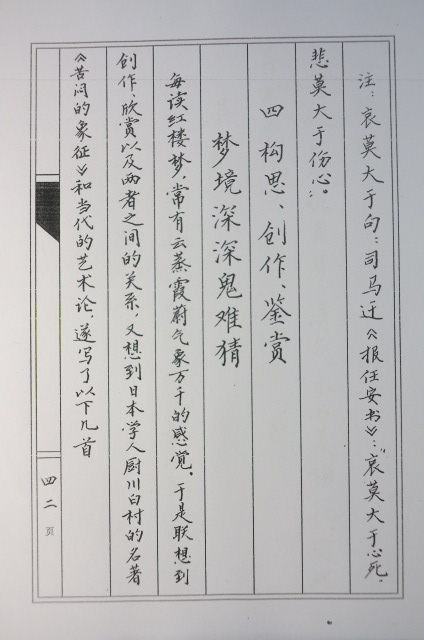 注：哀莫大于句：司马迁《报任安书》：“哀莫大于心死，
悲莫大于伤心。”
四 构思、创作、鉴赏
梦境深深鬼难猜
每读红楼梦，常有云蒸霞蔚气象万千的感觉。于是联想到
创作、欣赏以及两者之间的关系，又想到日本学人厨川白村的名著
《苦闷的象征》和当代的艺术论，遂写了以下几首
四二页